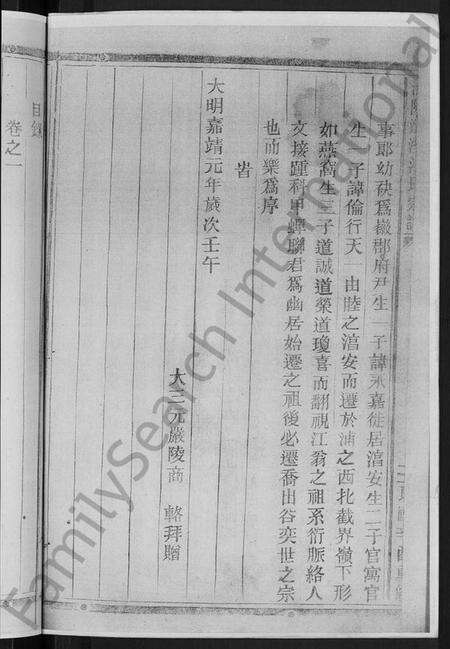 事郎幼秩為嚴郡府尹生一子諱永嘉徙居淯安生二子官寓官
生一子諱倫行天一由睦之淯安而遷於浦之西北截界嶺下形
如燕窩生三子道誠道榮道瓊喜而翻視江翁之祖系衍脈絡人
文接踵科甲蟬聯君為幽居始遷之祖後必遷喬出谷奕世之宗
也而樂為序
旹
大明嘉靖元年歲次壬午
大三元嚴陵商 輅拜贈
目錄
卷之一
FamilySearch International